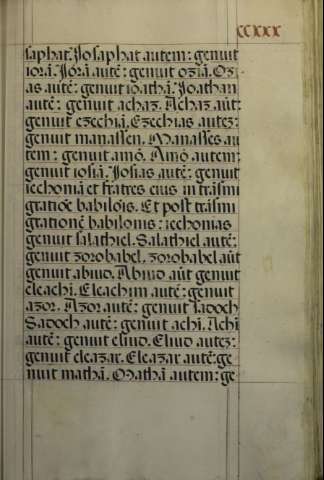 CCXXX
saphat. Iosaphat autem: genuit
iorā. Iorā autē: genuit oziā. Ozi
as autē: genuit ioathā. Ioathan
autē: genuit achaz. Achaz aūt:
genuit ezechiā. Ezechias autez:
genuit manassen. Manasses au
tem: genuit amō. Amō autem:
genuit iosiā. Iosias autē: genuit
iechoniā et fratres eius in trāsmi
gratiōe babilōis. Et post trāsmi
grationē babilonis: iechonias
genuit salathiel. Salathiel autē:
genuit zorobabel. zorobabel aūt
genuit abiud. Abiud aūt genuit
eleachī. Eleachim autē: genuit
azor. Azor autē: genuit sadoch
Sadoch autē: genuit achī. Achī
autē: genuit eliud. Eliud autez:
genuit eleazar. Eleazar autē: ge
nuit mathā. Mathā autem: ge